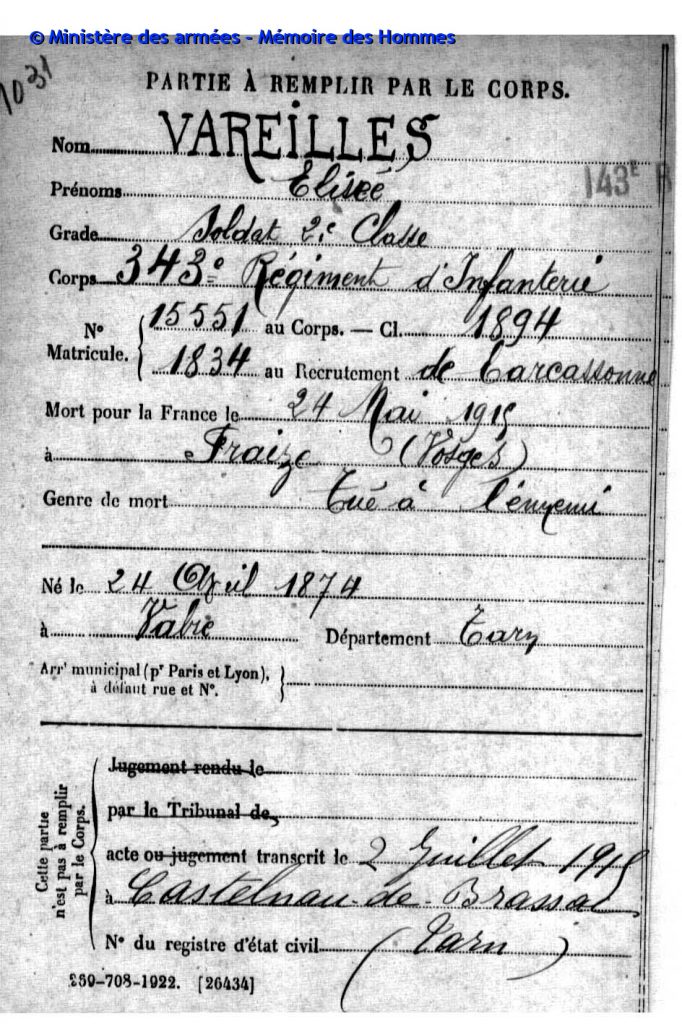 © Ministère des armées - Mémoire des Hommes
1031
PARTIE À REMPLIR PAR LE CORPS.
Nom VAREILLES
Prénoms Elisée
143E R
Grade Soldat 2e Classe
Corps 343e Régiment d'Infanterie
No Matricule. 15551 au Corps. — Cl. 1894
1834 au Recrutement de Carcassonne
Mort pour la France le 24 Mai 1915
à Fraize (Vosges)
Genre de mort Tué à l'ennemi
Né le 24 Avril 1874
à Vabre Département Tarn
Arrt municipal (pr Paris et Lyon), à défaut rue et No.
Cette partie n'est pas à remplir par le Corps.
Jugement rendu le
par le Tribunal de
acte ou jugement transcrit le 2 Juillet 1915
à Castelnau-de-Brassac
No du registre d'état civil (Tarn)
269-708-1922. [26434]